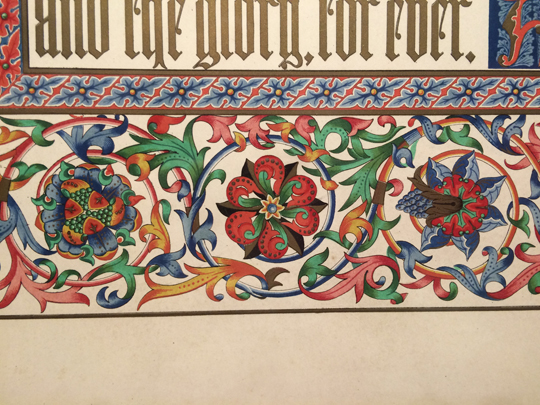 and the glory, for ever.